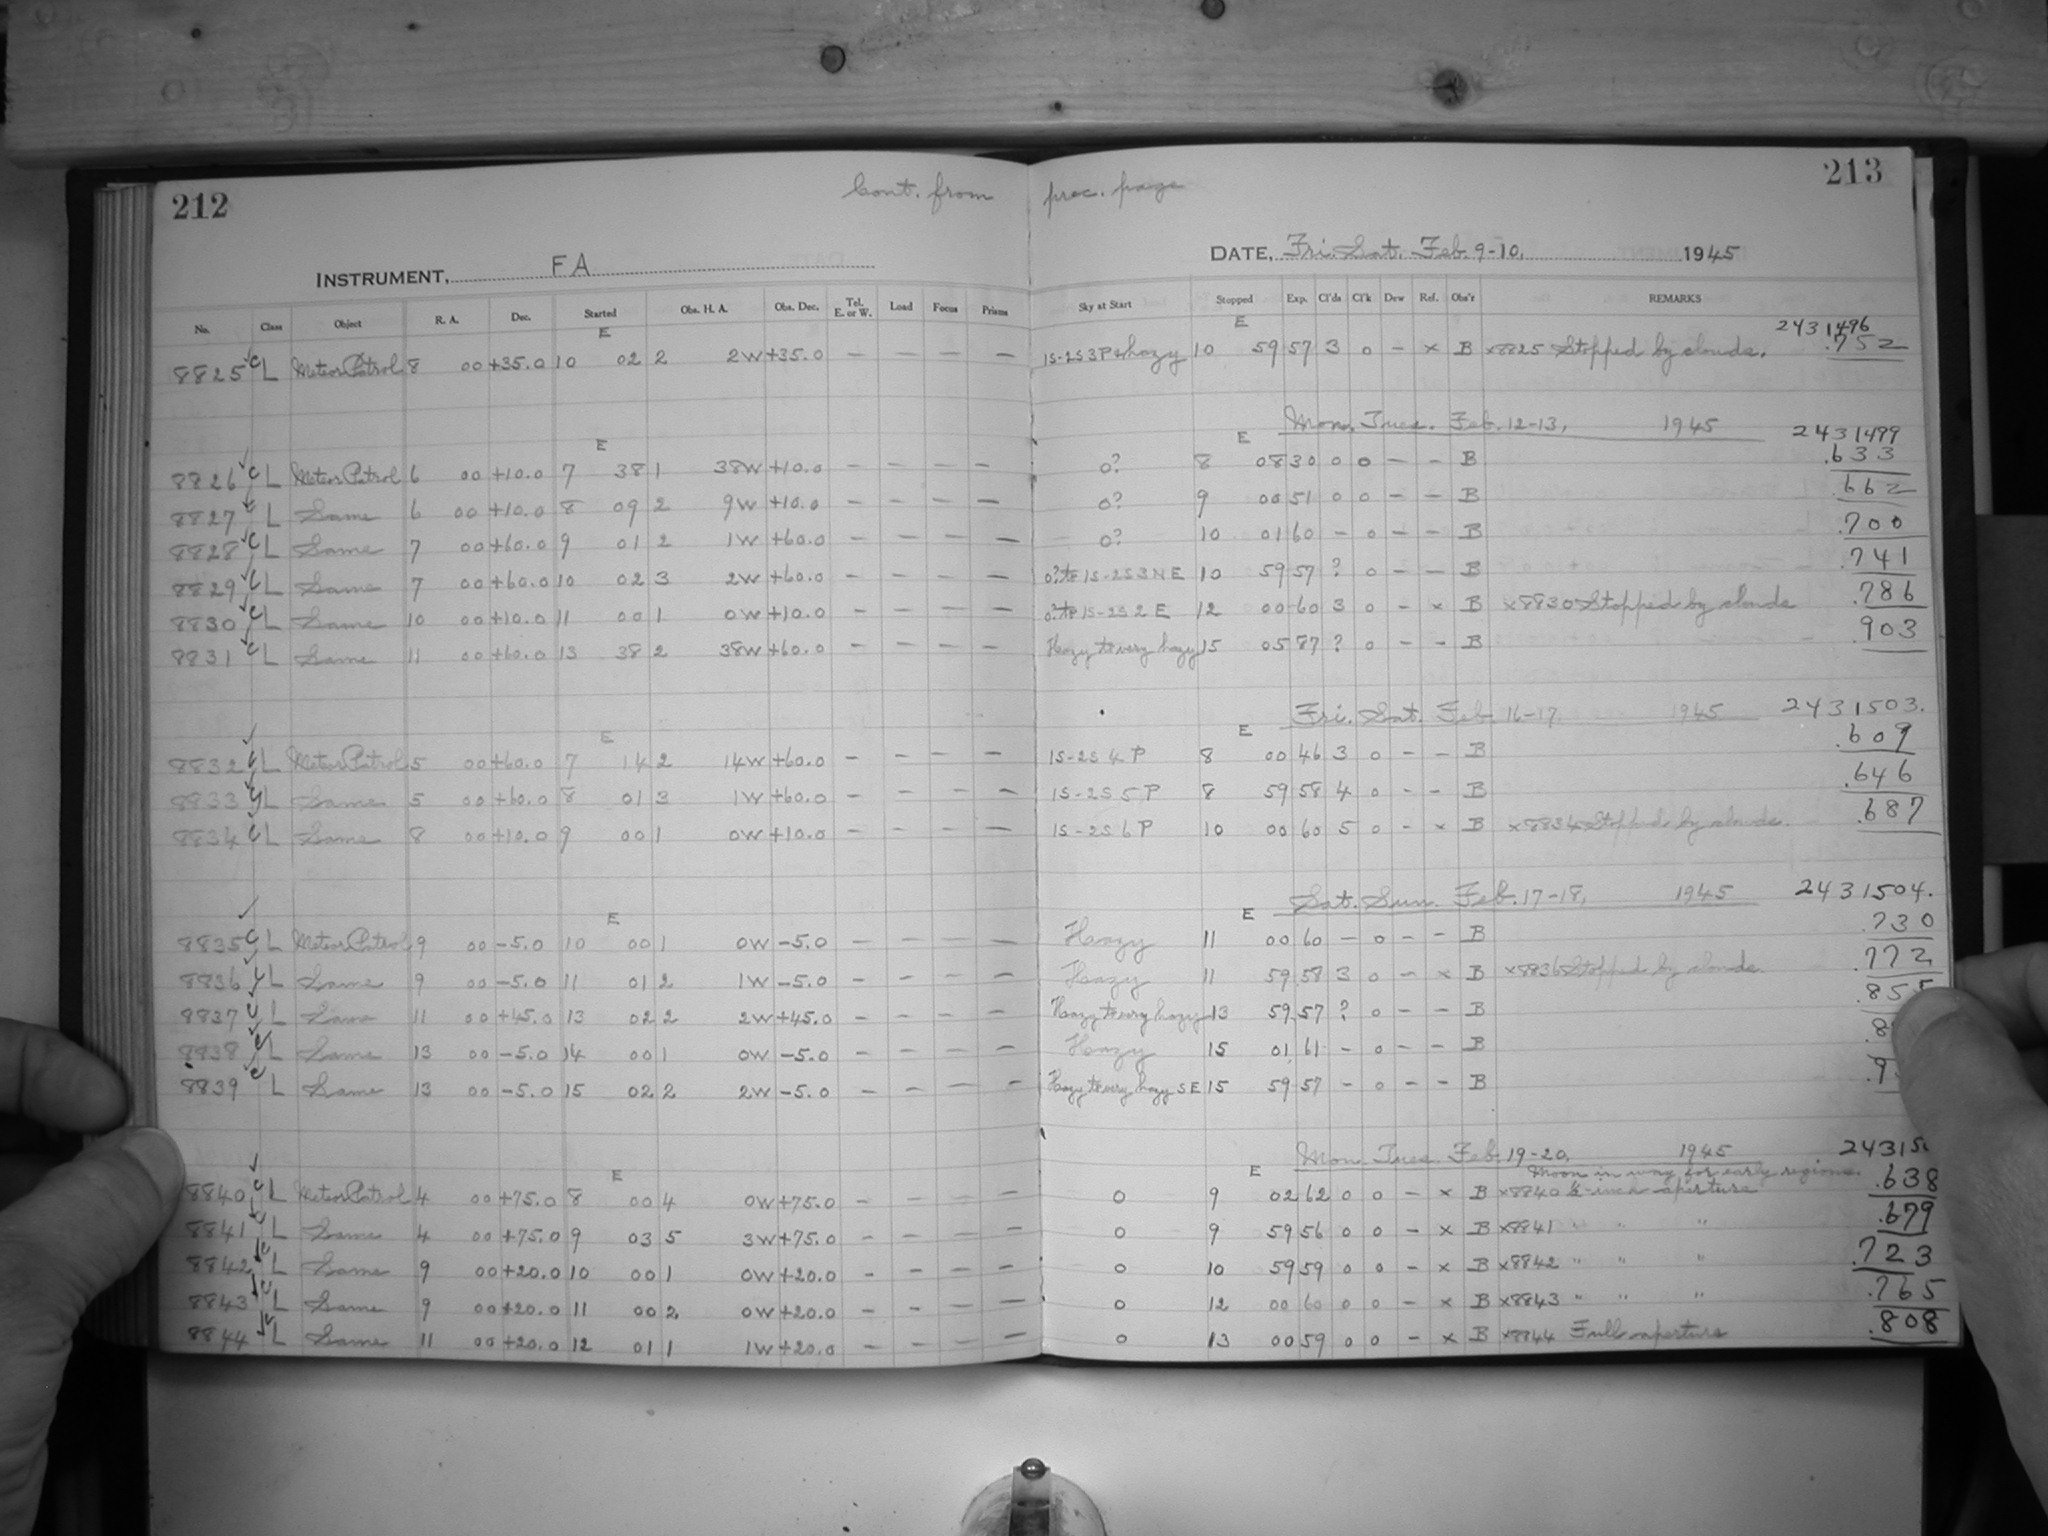 212 Cont. from prec. page 213
INSTRUMENT, FA DATE, Fri. Sat. Feb. 9-10, 1945
No. Class Object R. A. Dec. Started Obs. H. A. Obs. Dec. Tel. E. or W. Load Focus Prisms Sky at Start Stopped Exp. Cl'ds Cl'k Dew Ref. Obs'r REMARKS
E E 2431496
8825 C L Meteor Patrol 8 00 +35.0 10 02 2 2W +35.0 — — — — 1S-2S 3P + hazy 10 59 57 3 0 - x B x8825 Stopped by clouds. .752
Mon. Tues. Feb. 12-13, 1945 2431499
E E
8826 C L Meteor Patrol 6 00 +10.0 7 38 1 38W +10.0 — — — — 0? 8 08 30 0 0 — - B .633
8827 C L Same 6 00 +10.0 8 09 2 9W +10.0 — — — — 0? 9 00 51 0 0 - - B .662
8828 C L Same 7 00 +60.0 9 01 2 1W +60.0 — — — — 0? 10 01 60 - 0 - - B .700
8829 C L Same 7 00 +60.0 10 02 3 2W +60.0 — — — — 0? to 1S-2S 3 N E 10 59 57 ? 0 - - B .741
8830 C L Same 10 00 +10.0 11 00 1 0W +10.0 — — — — 0? to 1S-2S 2 E 12 00 60 3 0 - x B x8830 Stopped by clouds .786
8831 C L Same 11 00 +60.0 13 38 2 38W +60.0 — — — — Hazy to very hazy 15 05 87 ? 0 - - B .903
Fri. Sat. Feb. 16-17 1945 2431503.
E E
8832 C L Meteor Patrol 5 00 +60.0 7 14 2 14W +60.0 — — — — 1S-2S 4 P 8 00 46 3 0 - - B .609
8833 C L Same 5 00 +60.0 8 01 3 1W +60.0 — — — — 1S-2S 5 P 8 59 58 4 0 - - B .646
8834 C L Same 8 00 +10.0 9 00 1 0W +10.0 — — — — 1S-2S 6 P 10 00 60 5 0 - x B x8834 Stopped by clouds. .687
Sat. Sun. Feb. 17-18, 1945 2431504.
E E
8835 C L Meteor Patrol 9 00 -5.0 10 00 1 0W -5.0 — — — — Hazy 11 00 60 — 0 - - B .730
8836 C L Same 9 00 -5.0 11 01 2 1W -5.0 — — — — Hazy 11 59 58 3 0 - x B x8836 Stopped by clouds. .772
8837 C L Same 11 00 +45.0 13 02 2 2W +45.0 — — — — Hazy to very hazy 13 59 57 ? 0 - - B .855
8838 C L Same 13 00 -5.0 14 00 1 0W -5.0 — — — — Hazy 15 01 61 - 0 - - B
8839 C L Same 13 00 -5.0 15 02 2 2W -5.0 — — — — Hazy to very hazy S E 15 59 57 - 0 - - B
Mon. Tues. Feb. 19-20, 1945
E E Moon in way for early regions.
8840 C L Meteor Patrol 4 00 +75.0 8 00 4 0W +75.0 — — — — 0 9 02 62 0 0 - x B x8840 ½-inch aperture .638
8841 C L Same 4 00 +75.0 9 03 5 3W +75.0 — — — — 0 9 59 56 0 0 - x B x8841 " " " .679
8842 C L Same 9 00 +20.0 10 00 1 0W +20.0 — — — — 0 10 59 59 0 0 - x B x8842 " " " .723
8843 C L Same 9 00 +20.0 11 00 2 0W +20.0 — — — — 0 12 00 60 0 0 - x B x8843 " " " .765
8844 C L Same 11 00 +20.0 12 01 1 1W +20.0 — — — — 0 13 00 59 0 0 - x B x8844 Full aperture .808